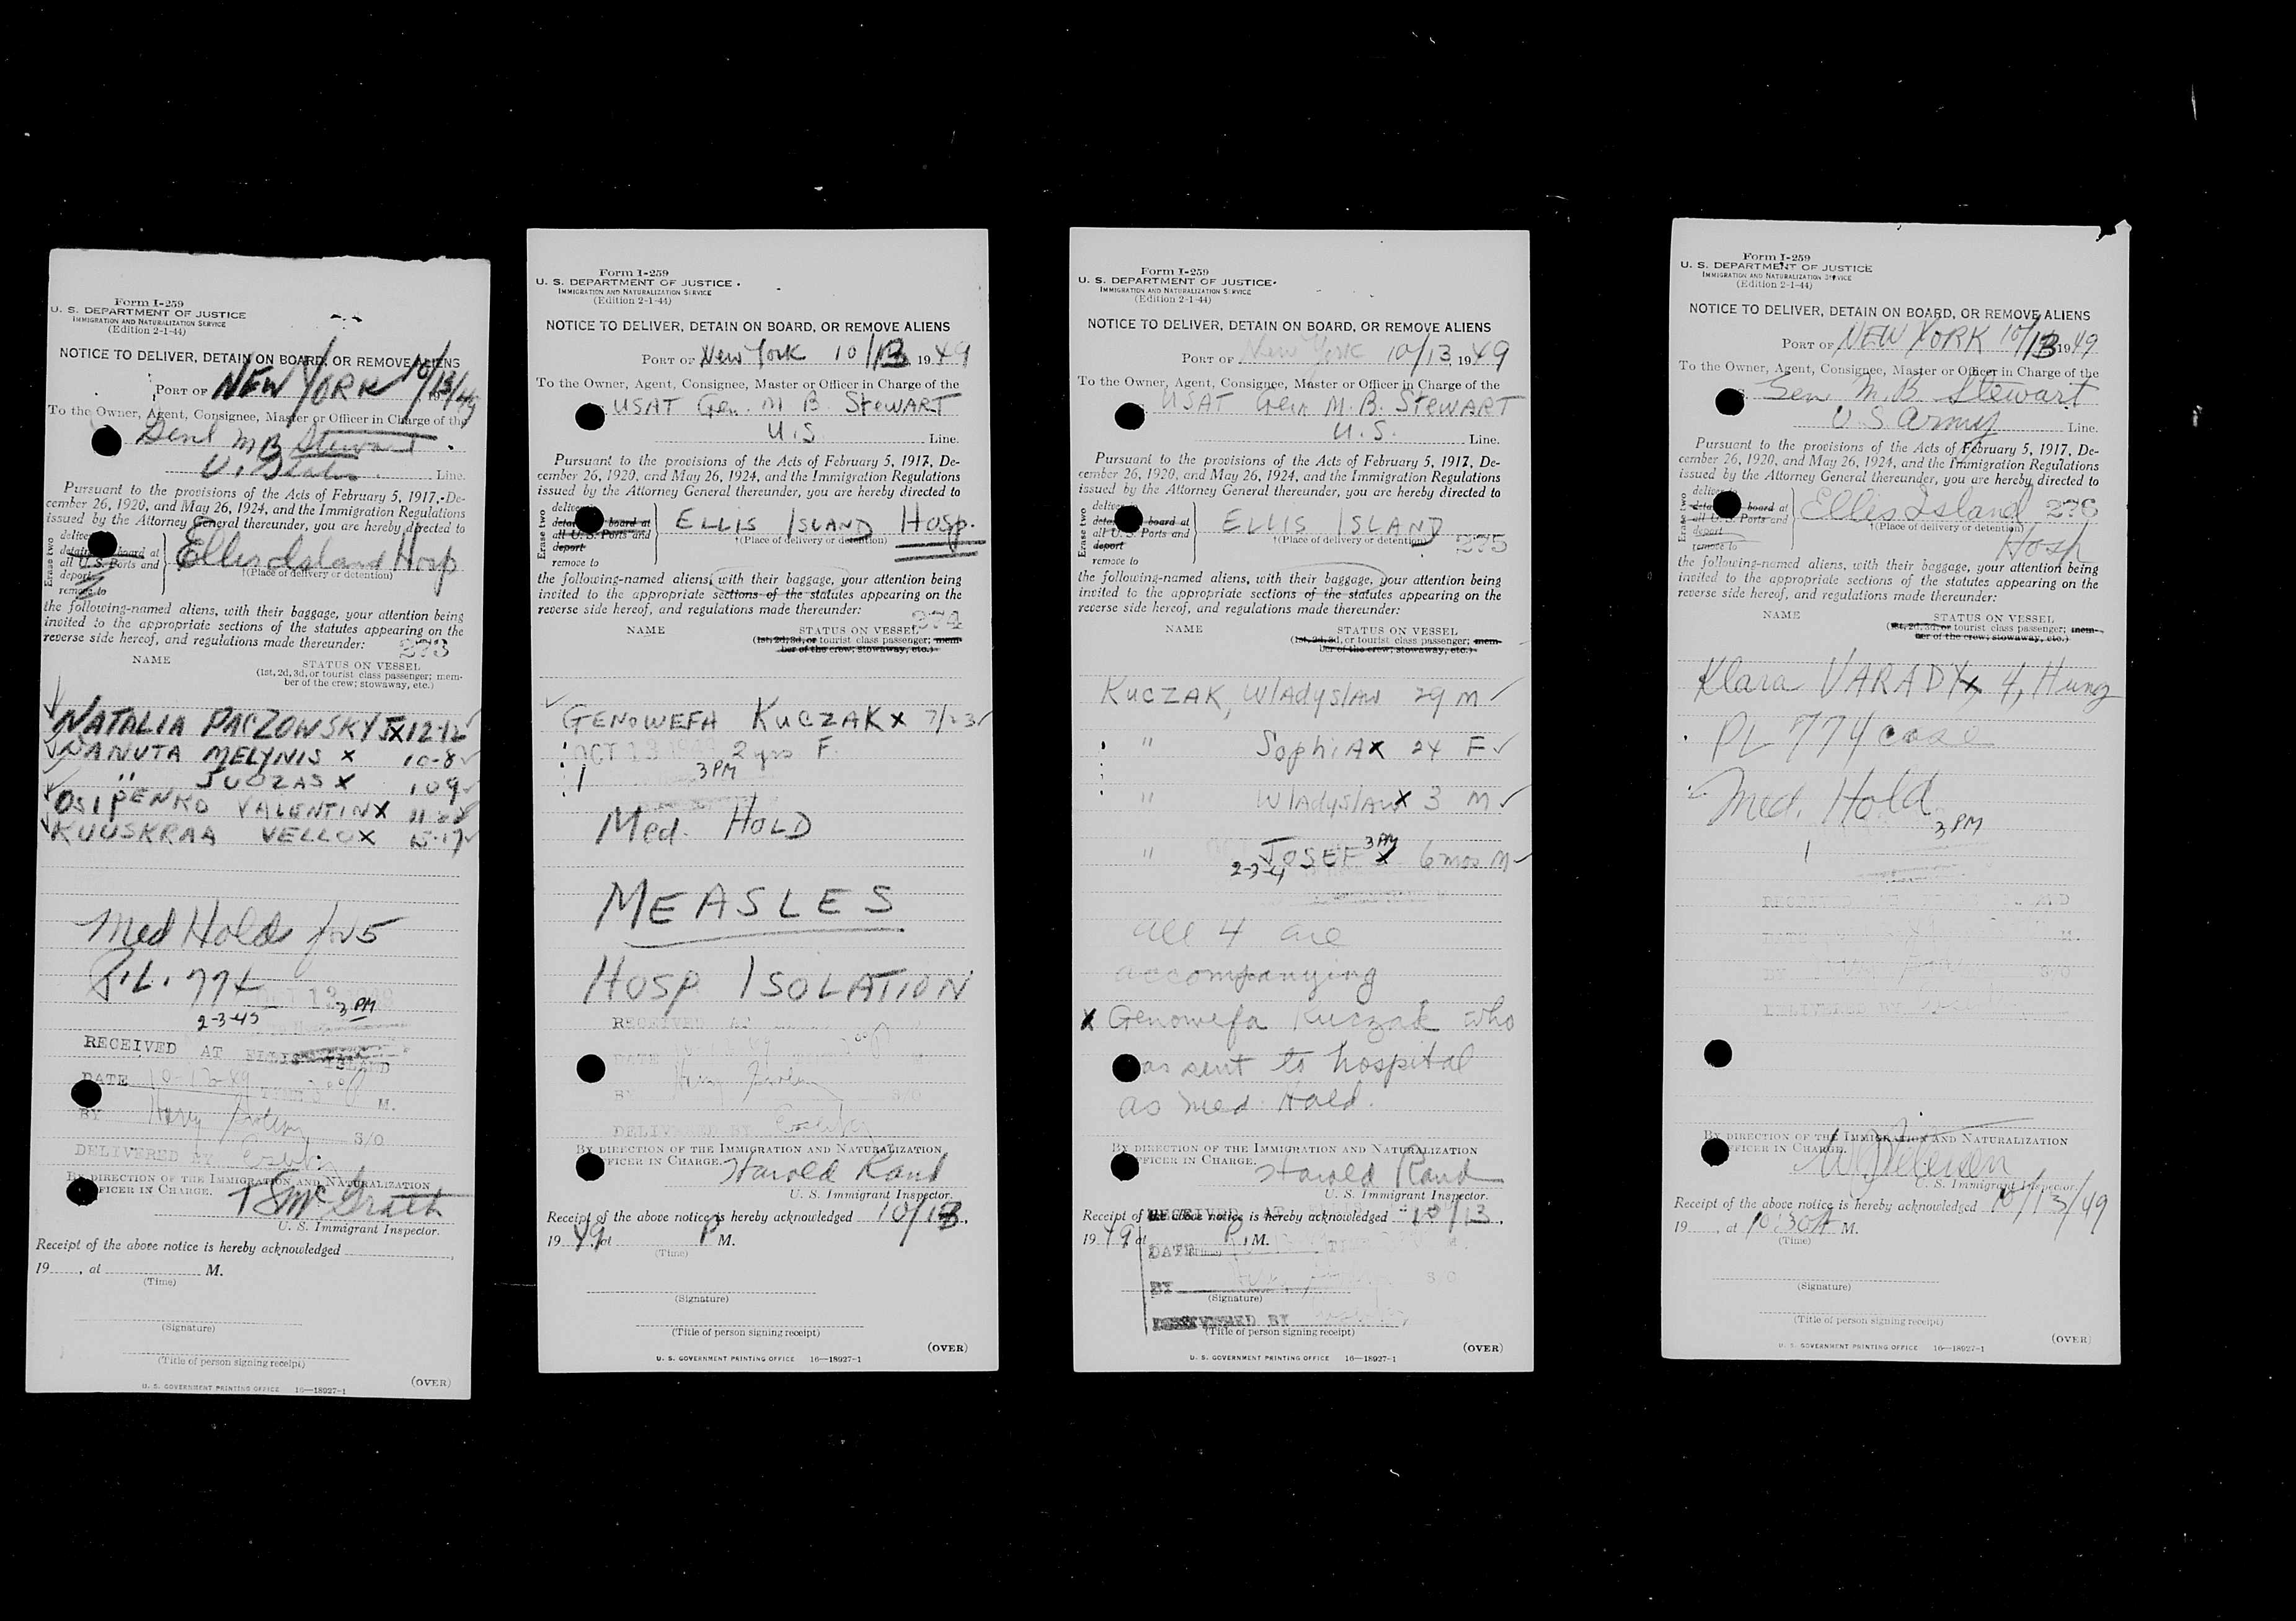 Form I-259
U. S. DEPARTMENT OF JUSTICE
IMMIGRATION AND NATURALIZATION SERVICE
(Edition 2-1-44)
NOTICE TO DELIVER, DETAIN ON BOARD, OR REMOVE ALIENS
PORT OF NEW YORK 10/13/49
To the Owner, Agent, Consignee, Master or Officer in Charge of the
Genl M B Stewart
U. States. Line.
Pursuant to the provisions of the Acts of February 5, 1917, De-
cember 26, 1920, and May 26, 1924, and the Immigration Regulations
issued by the Attorney General thereunder, you are hereby directed to
Erase two
deliver
detain board at
all U. S. Ports and
deport
remove to
Ellis Island Hosp
†(Place of delivery or detention)
the following-named aliens, with their baggage, your attention being
invited to the appropriate sections of the statutes appearing on the
reverse side hereof, and regulations made thereunder:
273
NAME
STATUS ON VESSEL
(1st, 2d, 3d, or tourist class passenger; mem-
ber of the crew; stowaway, etc.)
NATALIA PACZOWSKYJ X 12-12
DANUTA MELYNIS X 10-8
" JUOZAS X 10 9
OSIPENKO VALENTIN X
KUUSKRAA VELLO X 15-17
Med Hold for 5
P.L. 774
OCT 13 1949
3 PM
RECEIVED AT ELLIS ISLAND
DATE 10-13-49 TIME 3 00 P M.
BY Harry S/O
DELIVERED BY
BY DIRECTION OF THE IMMIGRATION AND NATURALIZATION
OFFICER IN CHARGE.
McGrath
U. S. Immigrant Inspector.
Receipt of the above notice is hereby acknowledged
19 , at M.
(Time)
(Signature)
(Title of person signing receipt)
(OVER)
U. S. GOVERNMENT PRINTING OFFICE 16—18927-1
Form I-259
U. S. DEPARTMENT OF JUSTICE
IMMIGRATION AND NATURALIZATION SERVICE
(Edition 2-1-44)
NOTICE TO DELIVER, DETAIN ON BOARD, OR REMOVE ALIENS
PORT OF New York 10/13, 1949
To the Owner, Agent, Consignee, Master or Officer in Charge of the
USAT Gen. M B. STEWART
U.S Line.
Pursuant to the provisions of the Acts of February 5, 1917, De-
cember 26, 1920, and May 26, 1924, and the Immigration Regulations
issued by the Attorney General thereunder, you are hereby directed to
Erase two
deliver
detain board at
all U. S. Ports and
deport
remove to
ELLIS ISLAND Hosp.
†(Place of delivery or detention)
the following-named aliens, with their baggage, your attention being
invited to the appropriate sections of the statutes appearing on the
reverse side hereof, and regulations made thereunder:
274
NAME
STATUS ON VESSEL
(1st, 2d, 3d, or tourist class passenger; mem-
ber of the crew; stowaway, etc.)
GENOWEFA KUCZAK X 7/23
OCT 13 1949 2 yrs F.
3 PM
Med. HOLD
MEASLES
HOSP ISOLATION
RECEIVED AT
DATE
BY Harry S/O
DELIVERED BY
BY DIRECTION OF THE IMMIGRATION AND NATURALIZATION
OFFICER IN CHARGE.
Harold Rand
U. S. Immigrant Inspector.
Receipt of the above notice is hereby acknowledged 10/13,
1949, at P M.
(Time)
(Signature)
(Title of person signing receipt)
(OVER)
U. S. GOVERNMENT PRINTING OFFICE 16—18927-1
Form I-259
U. S. DEPARTMENT OF JUSTICE
IMMIGRATION AND NATURALIZATION SERVICE
(Edition 2-1-44)
NOTICE TO DELIVER, DETAIN ON BOARD, OR REMOVE ALIENS
PORT OF New York 10/13, 1949
To the Owner, Agent, Consignee, Master or Officer in Charge of the
USAT Gen M. B. STEWART
U.S. Line.
Pursuant to the provisions of the Acts of February 5, 1917, De-
cember 26, 1920, and May 26, 1924, and the Immigration Regulations
issued by the Attorney General thereunder, you are hereby directed to
Erase two
deliver
detain board at
all U. S. Ports and
deport
remove to
ELLIS ISLAND
†(Place of delivery or detention)
275
the following-named aliens, with their baggage, your attention being
invited to the appropriate sections of the statutes appearing on the
reverse side hereof, and regulations made thereunder:
NAME
STATUS ON VESSEL
(1st, 2d, 3d, or tourist class passenger; mem-
ber of the crew; stowaway, etc.)
KUCZAK, Wladyslaw 29 M
" Sophia X 24 F
" Wladyslaw X 3 M
" JOSEF X 6 mos M
3 PM
all 4 are
accompanying
X Genowefa Kuczak who
was sent to hospital
as Med. Hold.
BY DIRECTION OF THE IMMIGRATION AND NATURALIZATION
OFFICER IN CHARGE.
Harold Rand
U. S. Immigrant Inspector.
Receipt of the above notice is hereby acknowledged 10/13,
1949, at P. M.
(Time)
RECEIVED AT ELLIS
DATE TIME M.
BY S/O
(Signature)
DELIVERED BY
(Title of person signing receipt)
(OVER)
U. S. GOVERNMENT PRINTING OFFICE 16—18927-1
Form I-259
U. S. DEPARTMENT OF JUSTICE
IMMIGRATION AND NATURALIZATION SERVICE
(Edition 2-1-44)
NOTICE TO DELIVER, DETAIN ON BOARD, OR REMOVE ALIENS
PORT OF NEW YORK 10/13 1949
To the Owner, Agent, Consignee, Master or Officer in Charge of the
Gen M. B. Stewart
U. S. Army Line.
Pursuant to the provisions of the Acts of February 5, 1917, De-
cember 26, 1920, and May 26, 1924, and the Immigration Regulations
issued by the Attorney General thereunder, you are hereby directed to
Erase two
deliver
detain board at
all U. S. Ports and
deport
remove to
Ellis Island 276
†(Place of delivery or detention)
Hosp
the following-named aliens, with their baggage, your attention being
invited to the appropriate sections of the statutes appearing on the
reverse side hereof, and regulations made thereunder:
NAME
STATUS ON VESSEL
(1st, 2d, 3d, or tourist class passenger; mem-
ber of the crew; stowaway, etc.)
Klara VARADY X, 4, Hung
PL 774 case
Med. Hold
3 PM
RECEIVED AT ELLIS ISLAND
DATE M.
BY S/O
DELIVERED BY
BY DIRECTION OF THE IMMIGRATION AND NATURALIZATION
OFFICER IN CHARGE.
U. S. Immigrant Inspector.
Receipt of the above notice is hereby acknowledged 10/13/49
19 , at 10:30 A M.
(Time)
(Signature)
(Title of person signing receipt)
(OVER)
U. S. GOVERNMENT PRINTING OFFICE 16—18927-1